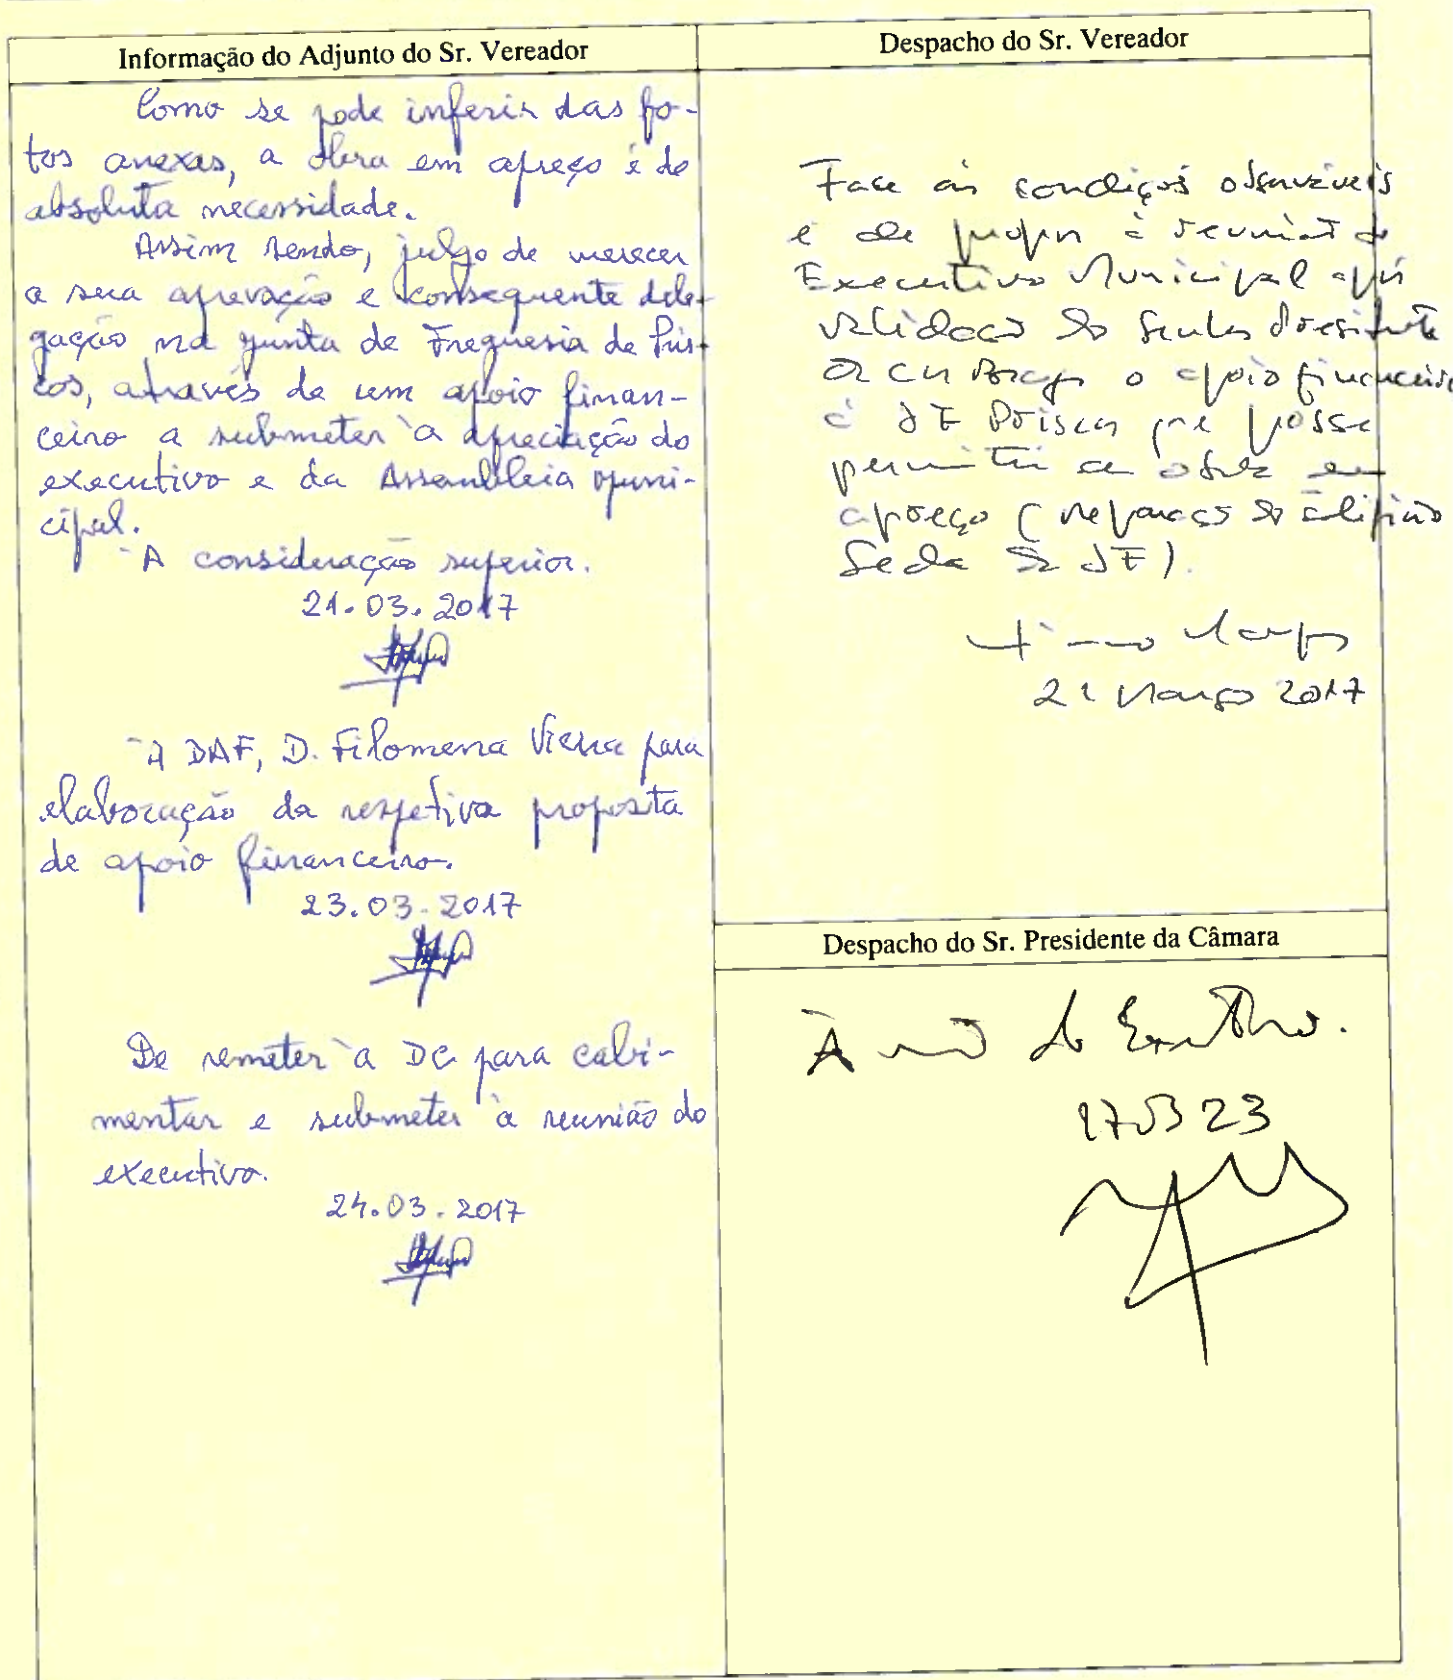 Informação do Adjunto do Sr. Vereador
Como se pode inferir das fo-
tos anexas, a obra em apreço é de
absoluta necessidade.
Assim sendo, julgo de merecer
a sua aprovação e consequente dele-
gação na Junta de Freguesia de Pris-
cos, através de um apoio finan-
ceiro a submeter à apreciação do
executivo e da Assembleia Muni-
cipal.
À consideração superior.
21.03.2017
À DAF, D. Filomena Vieira para
elaboração da respetiva proposta
de apoio financeiro.
23.03.2017
De remeter à DC para cabi-
mentar e submeter à reunião do
executivo.
24.03.2017
Despacho do Sr. Vereador
Face às condições observáveis
é de propor à reunião do
Executivo Municipal após
validação do Senhor Presidente
o apoio financeiro
à JF Priscos que possa
permitir a obra em
apreço (reparação do edifício
Sede da JF).
Março 2017
Despacho do Sr. Presidente da Câmara
À do Executivo.
23